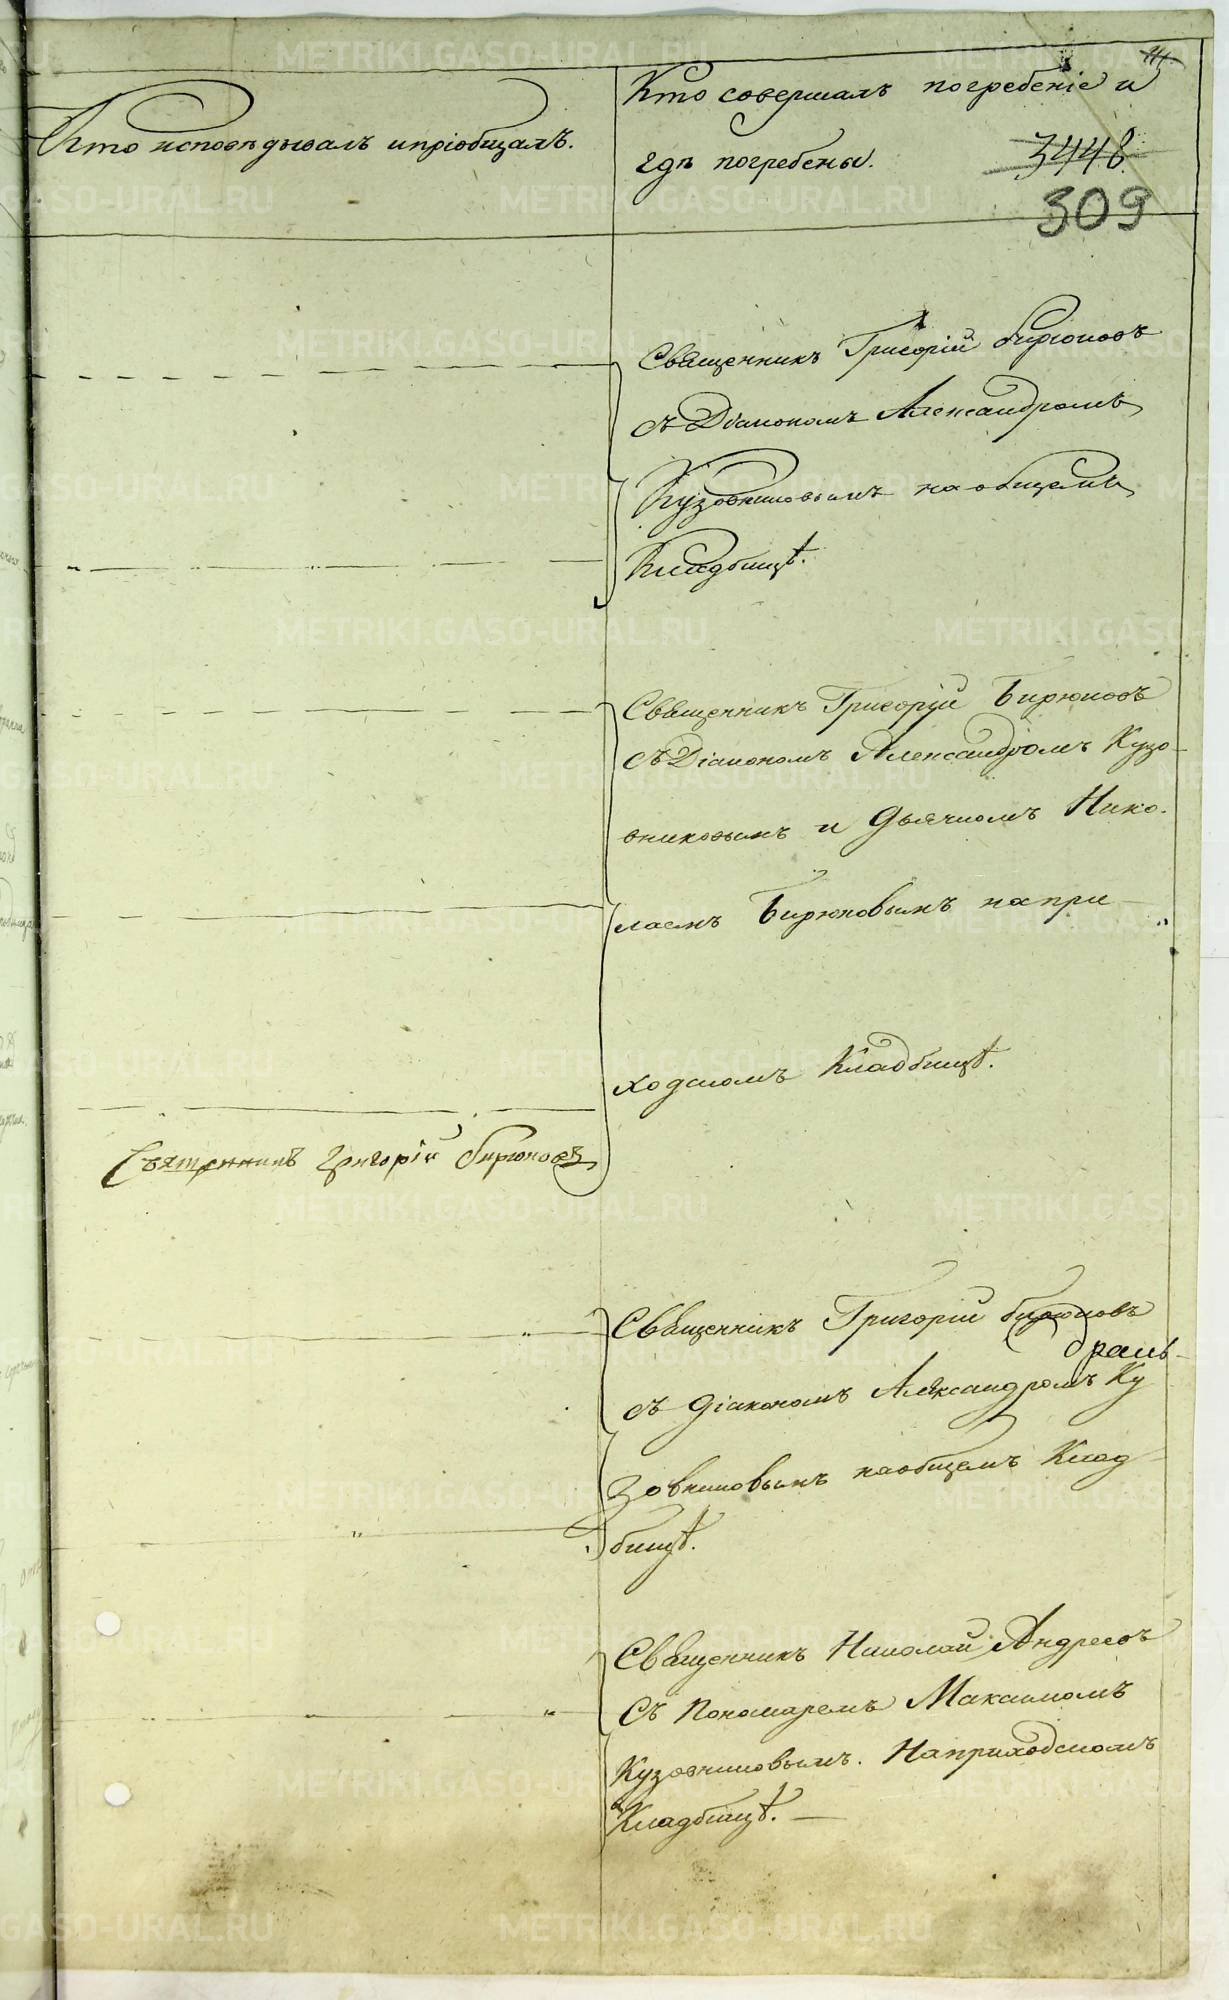 Кто исповѣдывалъ и пріобщалъ.
Кто совершалъ погребеніе и
гдѣ погребены.
3448
309
Священникъ Григорій Бирюковъ
съ Діакономъ Александромъ
Кузовниковымъ на общемъ
Кладбищѣ.
Священникъ Григорій Бирюковъ
съ Діакономъ Александромъ Кузо-
вниковымъ и Дьячкомъ Нико-
лаемъ Бирюковымъ на при-
ходскомъ Кладбищѣ.
Святенникъ григорій бирюковъ
Священникъ Григорій бирюковъ
съ діакономъ Александромъ Ку
зовниковымъ на общемъ Клад
бищѣ.
Священникъ Николай Андреевъ
съ Пономаремъ Максимомъ
Кузовниковымъ. На приходскомъ
Кладбищѣ.
METRIKI.GASO-URAL.RU